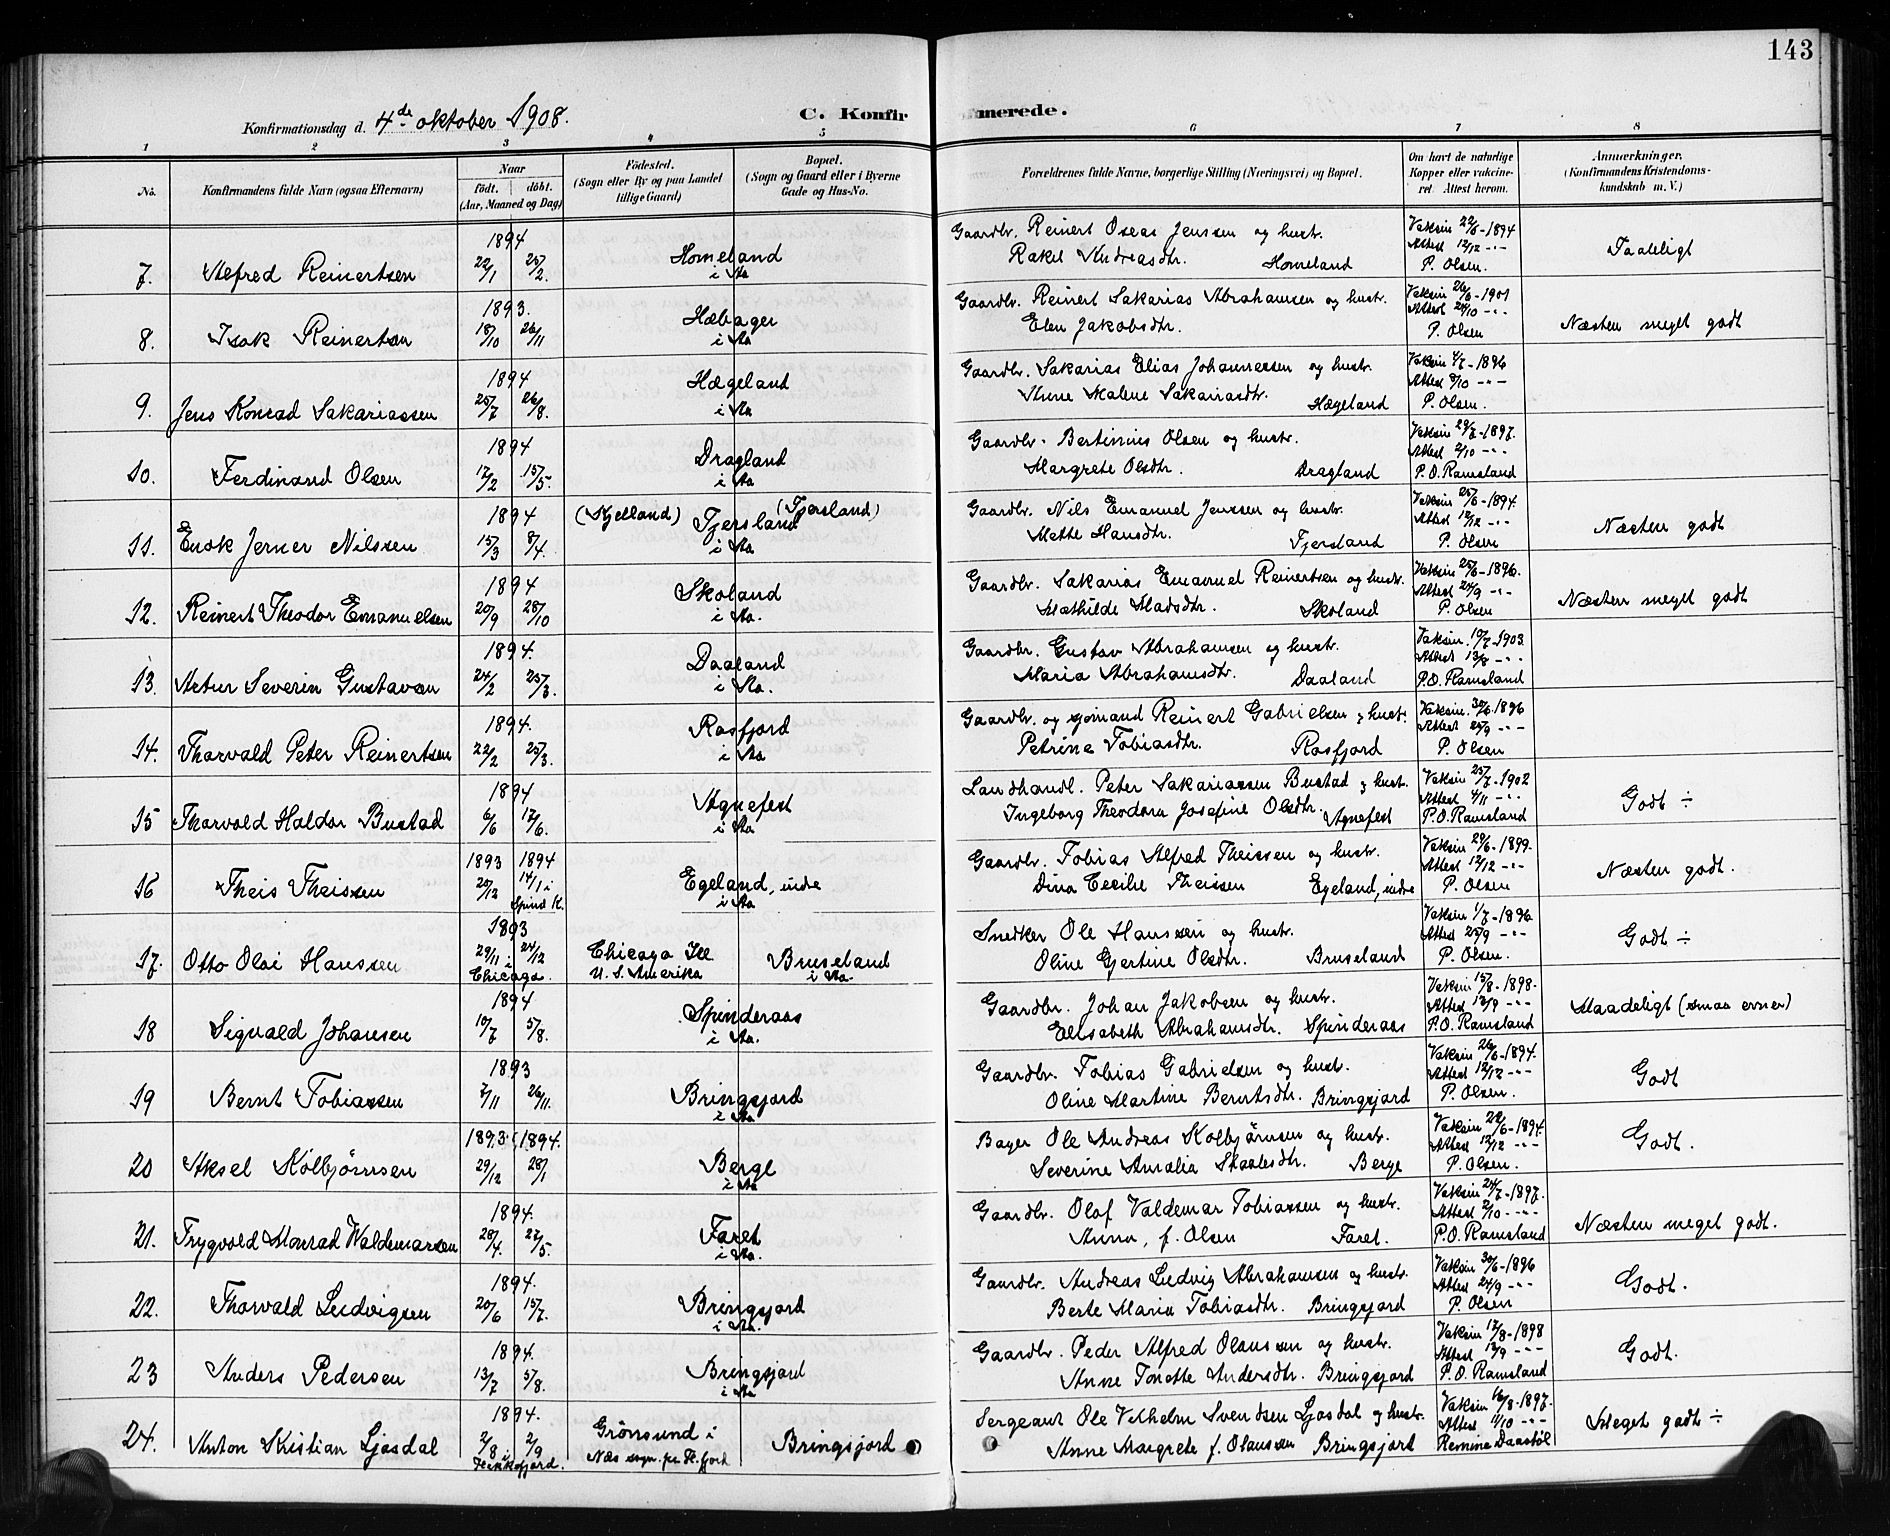 143
Konfirmationsdag d. 4de oktober 1908.
C. Konfirmerede.
1 2 3 4 5 6 7 8
No. Konfirmandens fulde Navn (ogsaa Efternavn) Naar födt. döbt. (Aar, Maaned og Dag) Födested. (Sogn eller By og paa Landet tillige Gaard) Bopæl. (Sogn og Gaard eller i Byerne Gade og Hus-No. Forældrenes fulde Navne, borgerlige Stilling (Næringsvei) og Bopæl. Om havt de naturlige Kopper eller vakcineret. Attest herom. Anmærkninger. (Konfirmandens Kristendomskundskab m. V.)
7. Alfred Reinertsen 1894 22/1 25/2. Homeland i Aa Gaardbr. Reinert Oseas Jenssen og hustr. Rakel Andreasdtr. Homeland Vaksin 22/6-1894 Attest 12/12 -"- P. Olsen. Taaleligt
8. Isak Reinertsen 1893. 18/10 26/11 Hæbager i Aa Gaardbr. Reinert Sakarias Abrahamsen og hustr. Elen Jakobsdtr. Vaksin 26/6-1901 Attest 24/10 -"- P. Olsen Næsten meget godt
9. Jens Konrad Sakariassen 1894 25/7 26/8. Hægeland i Aa Gaardbr. Sakarias Elias Johannessen og hustr. Anne Malene Sakariasdtr. Hægeland Vaksin 4/7-1896 Attest 9/10 -"- P. Olsen.
10. Ferdinand Olsen 1894 17/2 15/5. Dragland i Aa Gaardbr. Bertinius Olsen og hustr. Margrete Olsdtr. Dragland Vaksin 29/7-1897. Attest 2/10 -"- P. O. Ramsland
11. Enok Jerner Nilssen 1894 15/3 8/4. (Kjelland) Tjersland (Tjersland) i Aa Gaardbr. Nils Emanuel Jenssen og hustr. Mette Hansdtr. Tjersland Vaksin 25/6-1894. Attest 12/12 -"- P. Olsen Næsten godt
12. Reinert Theodor Emanuelsen 1894 20/9 28/10 Skoland i Aa. Gaardbr. Sakarias Emanuel Reinertsen og hustr. Mathilde Madsdtr. Skoland Vaksin 25/6-1896. Attest 24/9 -"- P. Olsen Næsten meget godt
13. Artur Severin Gustavsen 1894. 24/2 25/3. Daaland i Aa. Gaardbr. Gustav Abrahamsen og hustr. Maria Abrahamsdtr. Daaland Vaksin. 10/7-1903. Attest 13/8 -"- P.O. Ramsland
14. Thorvald Peter Reinertsen 1894. 22/2 25/3. Rosfjord i Aa Gaardbr. og sjømand Reinert Gabrielsen & hustr. Petrine Tobiasdtr. Rosfjord Vaksin. 30/6-1896 Attest 25/9 -"- P. Olsen
15 Thorvald Haldor Bustad 1894 6/6 17/6. Agnefest i Aa Landhandl. Peter Sakariassen Bustad & hustr. Ingeborg Theodora Josefine Olsdtr. Agnefest Vaksin 25/7-1902 Attest 4/11 -"- P.O. Ramsland Godt ÷
16 Theis Theissen 1893 1894 25/12 14/1 i Spind K. Egeland, indre i Aa Gaardbr. Tobias Alfred Theissen og hustr. Dina Cecilie Theissen Egeland, indre Vaksin 29/6-1899. Attest 12/12 -"- P. Olsen Næsten godt.
17. Otto Olai Hanssen 1893 29/11 24/12 i Chicago. Chicago Ill U. S. Amerika Bruseland i Aa. Snedker Ole Hanssen og hustr. Oline Gjertine Olsdtr. Bruseland Vaksin 1/7-1896 Attest 25/9 -"- P. Olsen. Godt ÷
18 Sigvald Johansen 1894 10/7 5/8. Spinderaas i Aa. Gaardbr. Johan Jakobsen og hustr. Elisabeth Abrahamsdtr. Spinderaas Vaksin 15/8-1898. Attest 12/9 -"- P.O. Ramsland Maadeligt (smaa evner)
19 Bernt Tobiassen 1893 2/11 26/11. Bringsjord i Aa Gaardbr. Tobias Gabrielsen og hustr. Oline Martine Berntsdtr. Bringsjord Vaksin 26/6-1894. Attest 12/12 -"- P. Olsen. Godt
20 Aksel Kolbjørnsen 1893 1894. 29/12 28/1 Berge i Aa Bager Ole Andreas Kolbjørnsen og hustr. Severine Amalia Staalesdtr. Berge Vaksin 22/6-1894. Attest 12/12 -"- P. Olsen. Godt.
21. Trygvold Monrad Waldemarsen 1894. 28/4 27/5. Faret i Aa. Gaardbr. Olaf Valdemar Tobiassen og hustr. Anna, f. Olsen Faret. Vaksin 24/7-1897. Attest 2/10 -"- P.O. Ramsland Næsten meget godt.
22. Thorvald Ludvigsen 1894. 20/6 15/7. Bringsjord i Aa. Gaardbr. Andreas Ludvig Abrahamsen og hustr. Berte Maria Tobiasdtr. Bringsjord Vaksin 30/6-1896 Attest 24/9 -"- P. Olsen Godt.
23 Anders Pedersen 1894. 13/7 5/8. Bringsjord i Aa Gaardbr. Peder Alfred Olaussen og hustr. Anne Tonette Andersdtr. Bringsjord Vaksin 17/8-1898 Attest 12/9 -"- P. O. Ramsland Godt.
24. Anton Kristian Ljosdal 1894. 2/8 2/9 i Flekkefjord. Grønsund i Næs sogn. pr. Fl.fjord Bringsjord Sergeant Ole Vilhelm Svendsen Ljosdal og hustr. Anne Margrete f. Olaussen Bringsjord Vaksin 16/8-1897. Attest 11/10 -"- Meget godt ÷